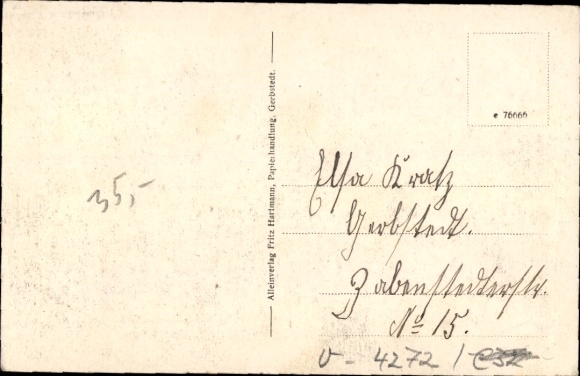 Alleinverlag Fritz Hartmann, Papierhandlung, Gerbstedt.
e 76666
35,-
Elsa Kratz
Gerbstedt.
Zabenstedterstr.
No 15.
v - 4272 /